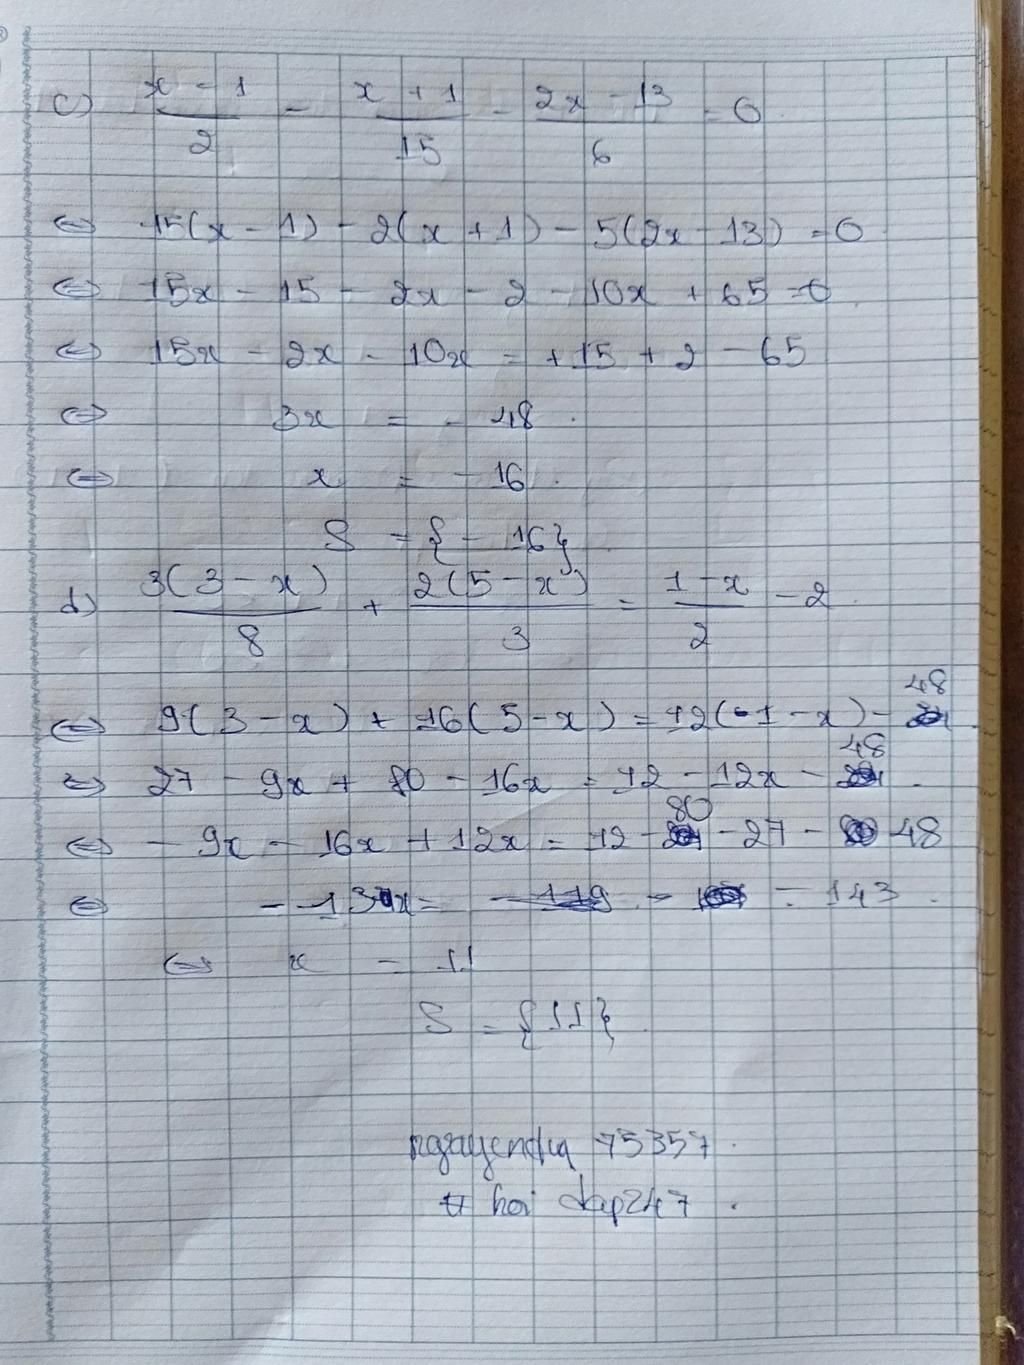 c) (x - 1)/2 - (x + 1)/15 - (2x - 13)/6 = 0
<=> 15(x - 1) - 2(x + 1) - 5(2x - 13) = 0
<=> 15x - 15 - 2x - 2 - 10x + 65 = 0
<=> 15x - 2x - 10x = +15 + 2 - 65
<=> 3x = - 48.
<=> x = - 16.
S = { - 16}
d) 3(3 - x)/8 + 2(5 - x)/3 = (1 - x)/2 - 2
<=> 9(3 - x) + 16(5 - x) = 12(1 - x) - 48
<=> 27 - 9x + 80 - 16x = 12 - 12x - 48.
<=> - 9x - 16x + 12x = 12 - 80 - 27 - 48
<=> - 13x = - 143.
<=> x = 11
S = {11}.
75357.
# hoi dap247.